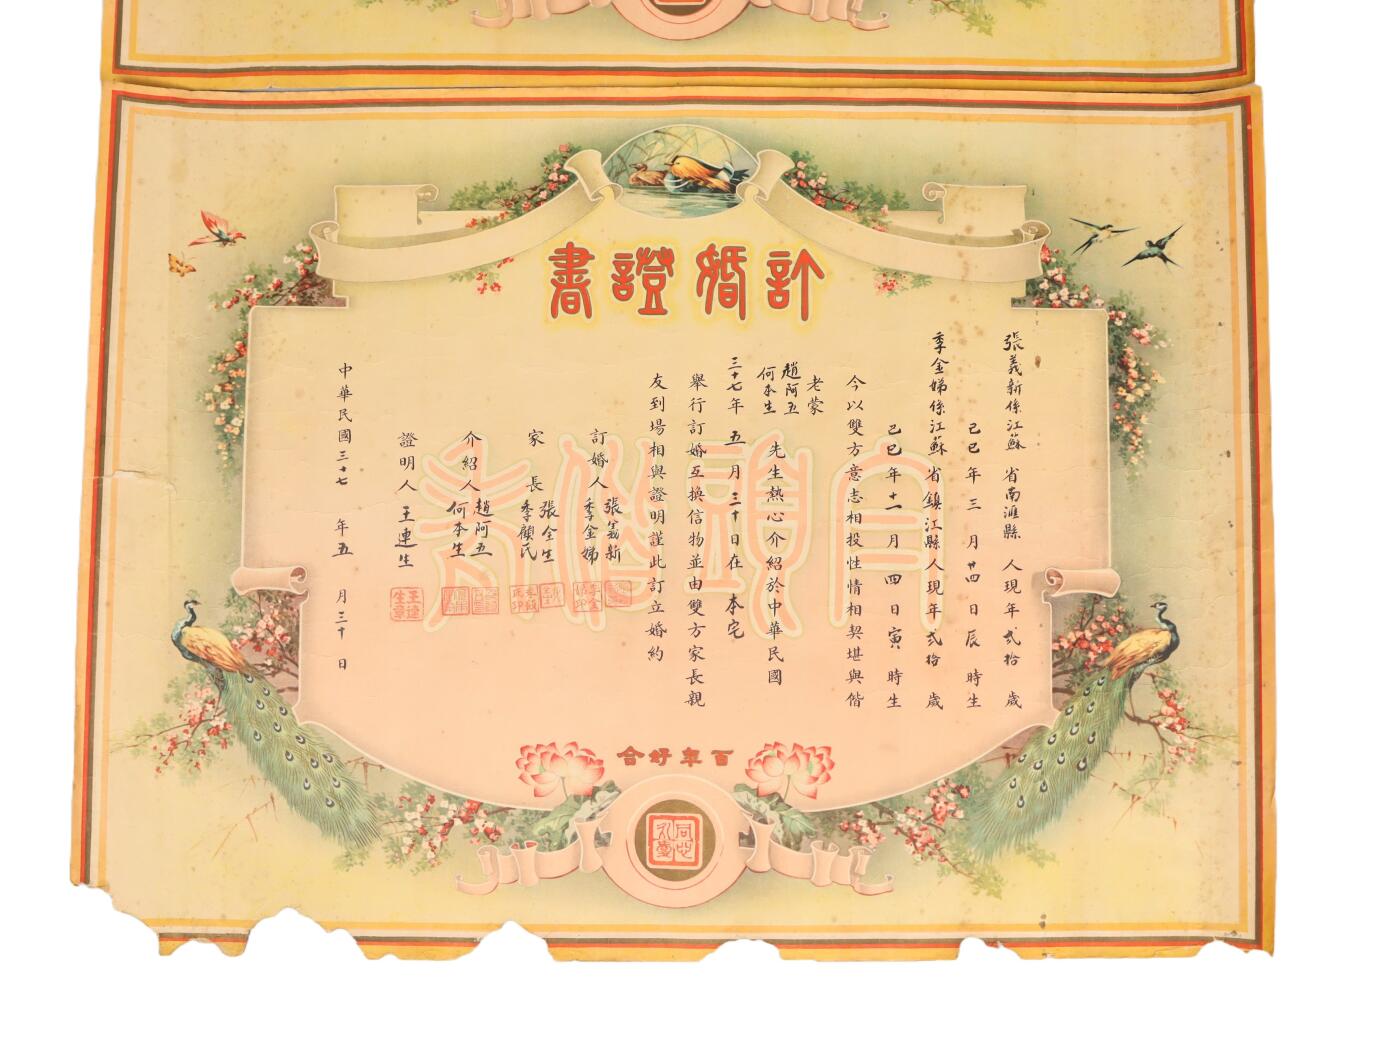 訂婚證書
張義新係江蘇省南滙縣人現年弍拾歲
己巳年三月廿四日辰時生
季金娣係江蘇省鎮江縣人現年弍拾歲
己巳年十一月四日寅時生
今以雙方意志相投性情相契堪與偕
老蒙
趙阿五
何本生
先生熱心介紹於中華民國
三十七年五月三十日在本宅
舉行訂婚互換信物並由雙方家長親
友到場相與證明謹此訂立婚約
訂婚人
張義新
季金娣
家長
張全生
季顧氏
介紹人
趙阿五
何本生
證明人王連生
王連生章
中華民國三十七年五月三十日
白頭偕老
百年好合
同心永臺